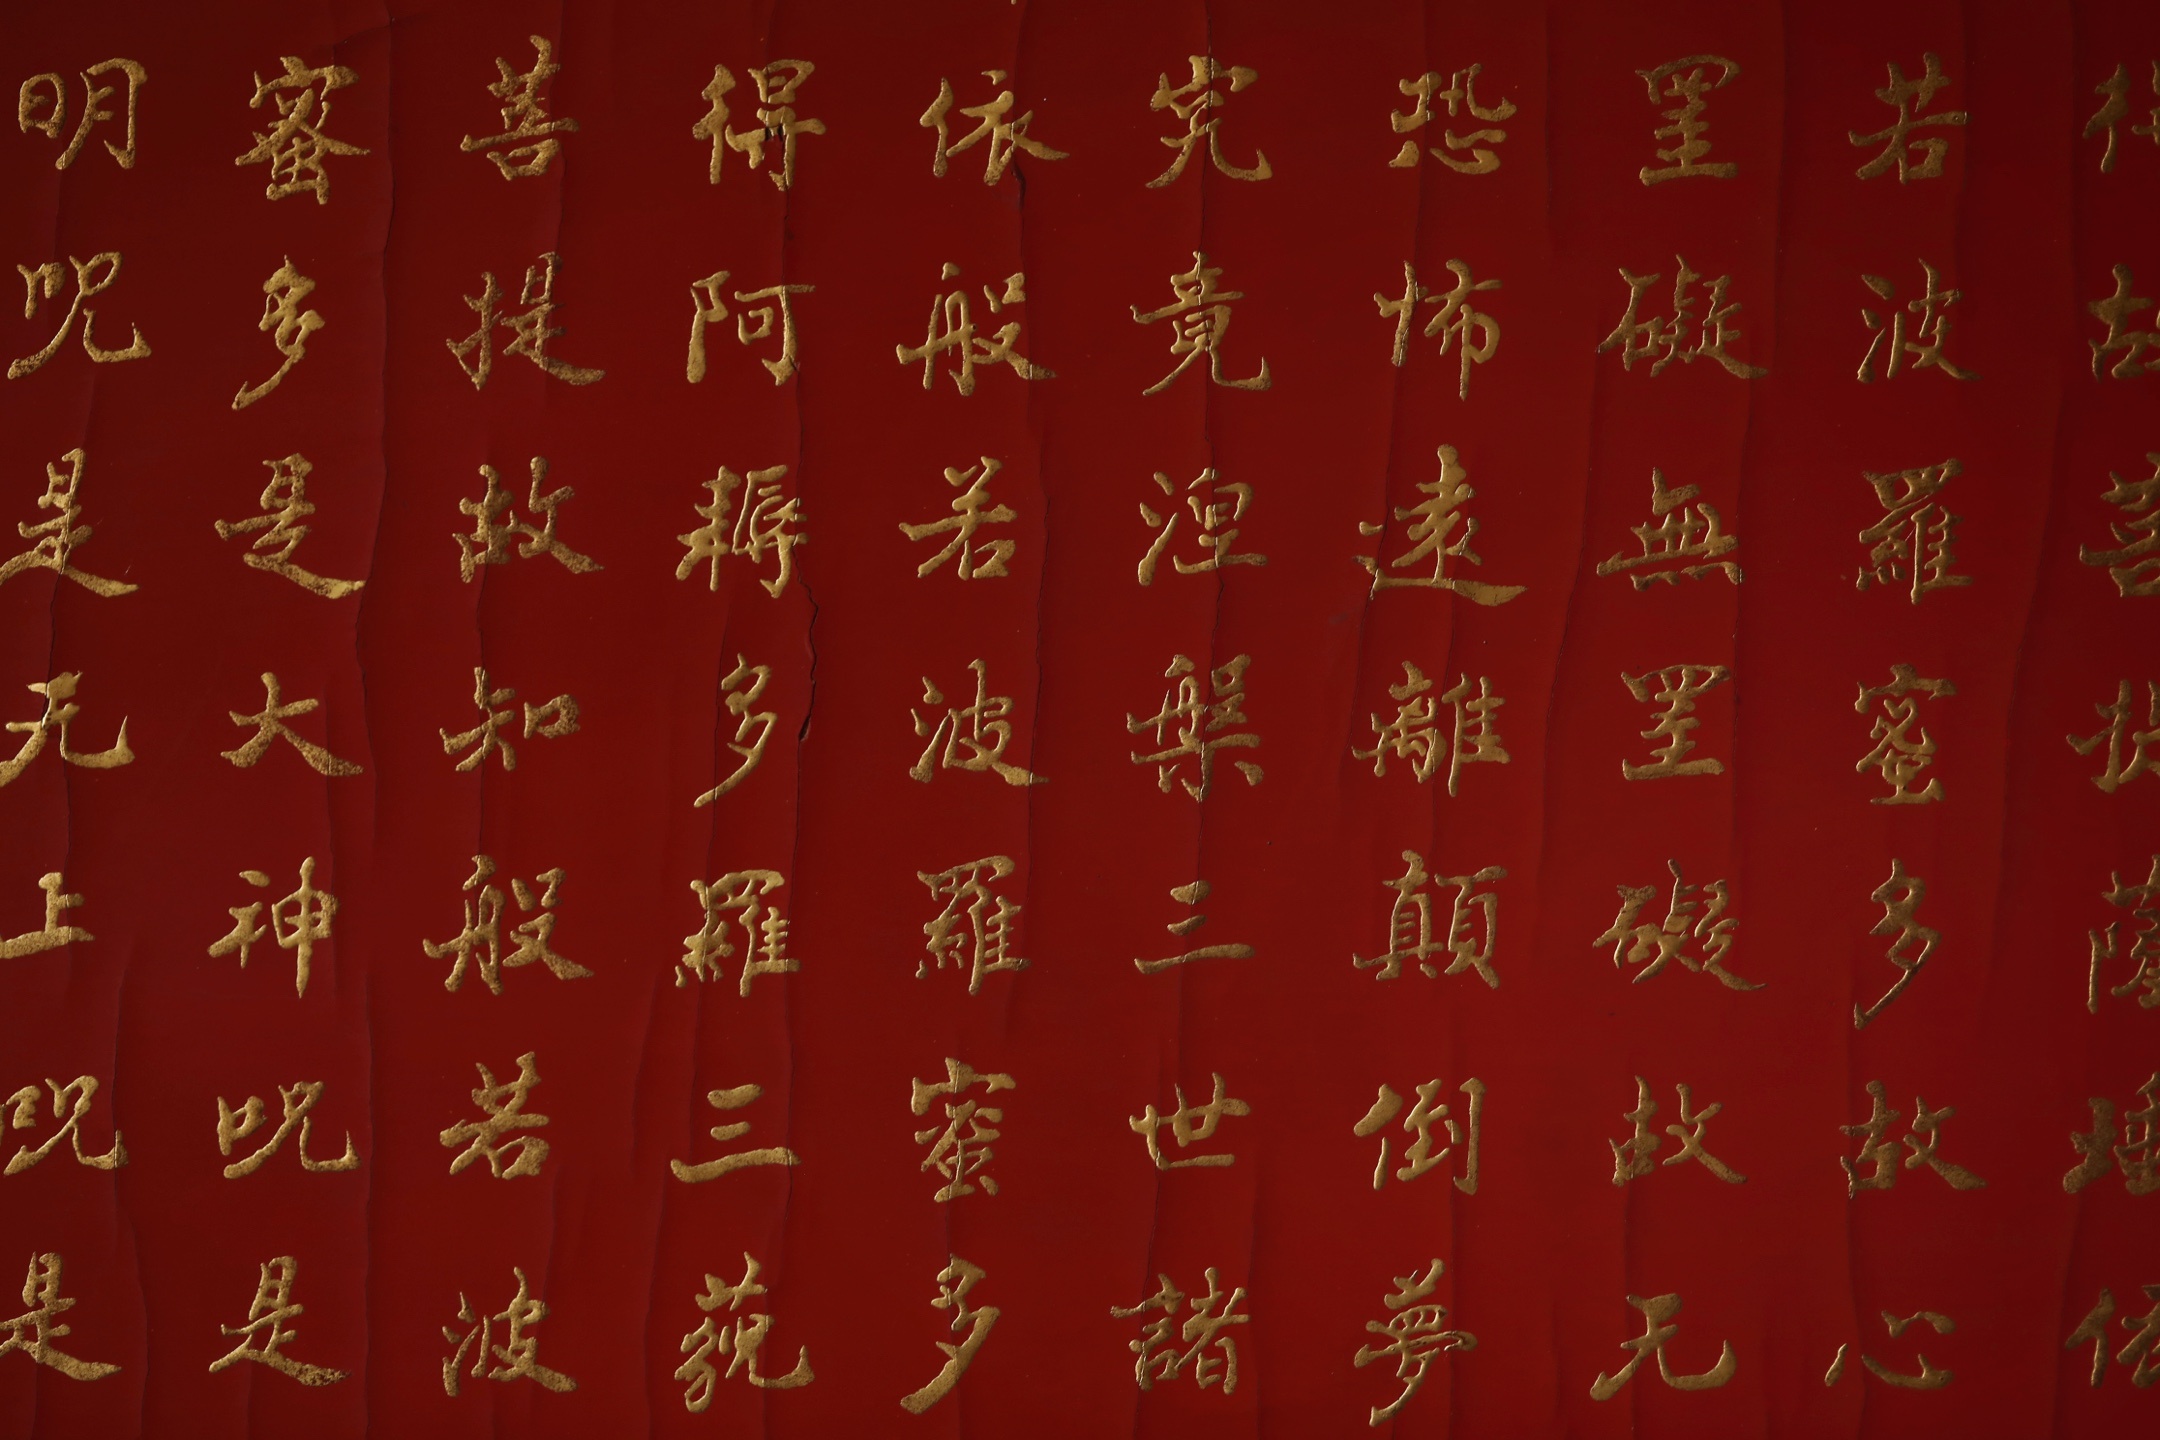 得故菩提薩埵依
若波羅蜜多故心
罣礙無罣礙故无
恐怖遠離顛倒夢
究竟涅槃三世諸
依般若波羅蜜多
得阿耨多羅三藐
菩提故知般若波
蜜多是大神呪是
明呪是无上呪是